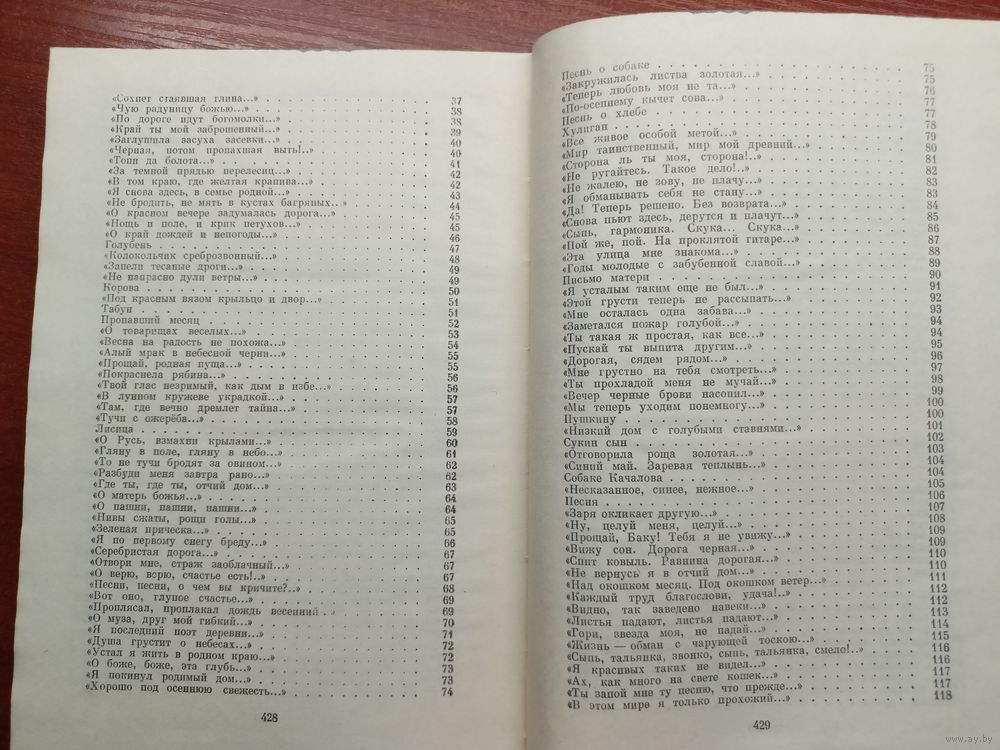 «Сохнет стаявшая глина...» 37
«Чую радуницу божью...» 38
«По дороге идут богомолки...» 38
«Край ты мой заброшенный...» 39
«Заглушила засуха засевки...» 40
«Черная, потом пропахшая выть!..» 40
«Топи да болота...» 41
«За темной прядью перелесиц...» 42
«В том краю, где желтая крапива...» 42
«Я снова здесь, в семье родной...» 43
«Не бродить, не мять в кустах багряных...» 44
«О красном вечере задумалась дорога...» 45
«Нощь и поле, и крик петухов...» 45
«О край дождей и непогоды...» 46
Голубень 47
«Колокольчик среброзвонный...» 48
«Запели тесаные дроги...» 49
«Не напрасно дули ветры...» 49
Корова 50
«Под красным вязом крыльцо и двор...» 51
Табун 51
Пропавший месяц 52
«О товарищах веселых...» 53
«Весна на радость не похожа...» 54
«Алый мрак в небесной черни...» 55
«Прощай, родная пуща...» 55
«Покраснела рябина...» 56
«Твой глас незримый, как дым в избе...» 56
«В лунном кружеве украдкой...» 57
«Там, где вечно дремлет тайна...» 57
«Тучи с ожерёба...» 58
Лисица 59
«О Русь, взмахни крылами...» 60
«Гляну в поле, гляну в небо...» 61
«То не тучи бродят за овином...» 62
«Разбуди меня завтра рано...» 62
«Где ты, где ты, отчий дом...» 63
«О матерь божья...» 64
«О пашни, пашни, пашни...» 64
«Нивы сжаты, рощи голы...» 65
«Зеленая прическа...» 65
«Я по первому снегу бреду...» 66
«Серебристая дорога...» 67
«Отвори мне, страж заоблачный...» 67
«О верю, верю, счастье есть!..» 67
«Песни, песни, о чем вы кричите?..» 68
«Вот оно, глупое счастье...» 69
«Проплясал, проплакал дождь весенний...» 69
«О муза, друг мой гибкий...» 70
«Я последний поэт деревни...» 71
«Душа грустит о небесах...» 72
«Устал я жить в родном краю...» 72
«О боже, боже, эта глубь...» 73
«Я покинул родимый дом...» 73
«Хорошо под осеннюю свежесть...» 74
428
Песнь о собаке 75
«Закружилась листва золотая...» 75
«Теперь любовь моя не та...» 76
«По-осеннему кычет сова...» 77
Песнь о хлебе 77
Хулиган 78
«Все живое особой метой...» 79
«Мир таинственный, мир мой древний...» 80
«Сторона ль ты моя, сторона!..» 81
«Не ругайтесь. Такое дело!..» 82
«Не жалею, не зову, не плачу...» 83
«Я обманывать себя не стану...» 83
«Да! Теперь решено. Без возврата...» 84
«Снова пьют здесь, дерутся и плачут...» 85
«Сыпь, гармоника. Скука... Скука...» 86
«Пой же, пой. На проклятой гитаре...» 87
«Эта улица мне знакома...» 88
«Годы молодые с забубенной славой...» 89
Письмо матери 90
«Я усталым таким еще не был...» 91
«Этой грусти теперь не рассыпать...» 92
«Мне осталась одна забава...» 93
«Заметался пожар голубой...» 94
«Ты такая ж простая, как все...» 94
«Пускай ты выпита другим...» 95
«Дорогая, сядем рядом...» 96
«Мне грустно на тебя смотреть...» 97
«Ты прохладой меня не мучай...» 98
«Вечер черные брови насопил...» 99
«Мы теперь уходим понемногу...» 100
Пушкину 100
«Низкий дом с голубыми ставнями...» 101
Сукин сын 102
«Отговорила роща золотая...» 103
«Синий май. Заревая теплынь...» 104
Собаке Качалова 104
«Несказанное, синее, нежное...» 105
Песня 106
«Заря окликает другую...» 107
«Ну, целуй меня, целуй...» 108
«Прощай, Баку! Тебя я не увижу...» 109
«Вижу сон. Дорога черная...» 109
«Спит ковыль. Равнина дорогая...» 110
«Не вернусь я в отчий дом...» 110
«Над окошком месяц. Под окошком ветер...» 111
«Каждый труд благослови, удача!..» 112
«Видно, так заведено навеки...» 112
«Листья падают, листья падают...» 113
«Гори, звезда моя, не падай...» 114
«Жизнь — обман с чарующей тоскою...» 115
«Сыпь, тальянка, звонко, сыпь, тальянка, смело!..» 116
«Я красивых таких не видел...» 116
«Ах, как много на свете кошек...» 117
«Ты запой мне ту песню, что прежде...» 117
«В этом мире я только прохожий...» 118
429
www.ay.by